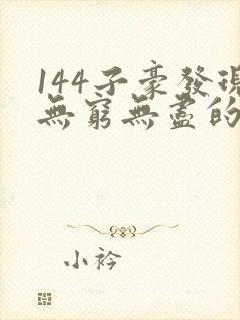 144子豪發現
無窮無盡的
小衿